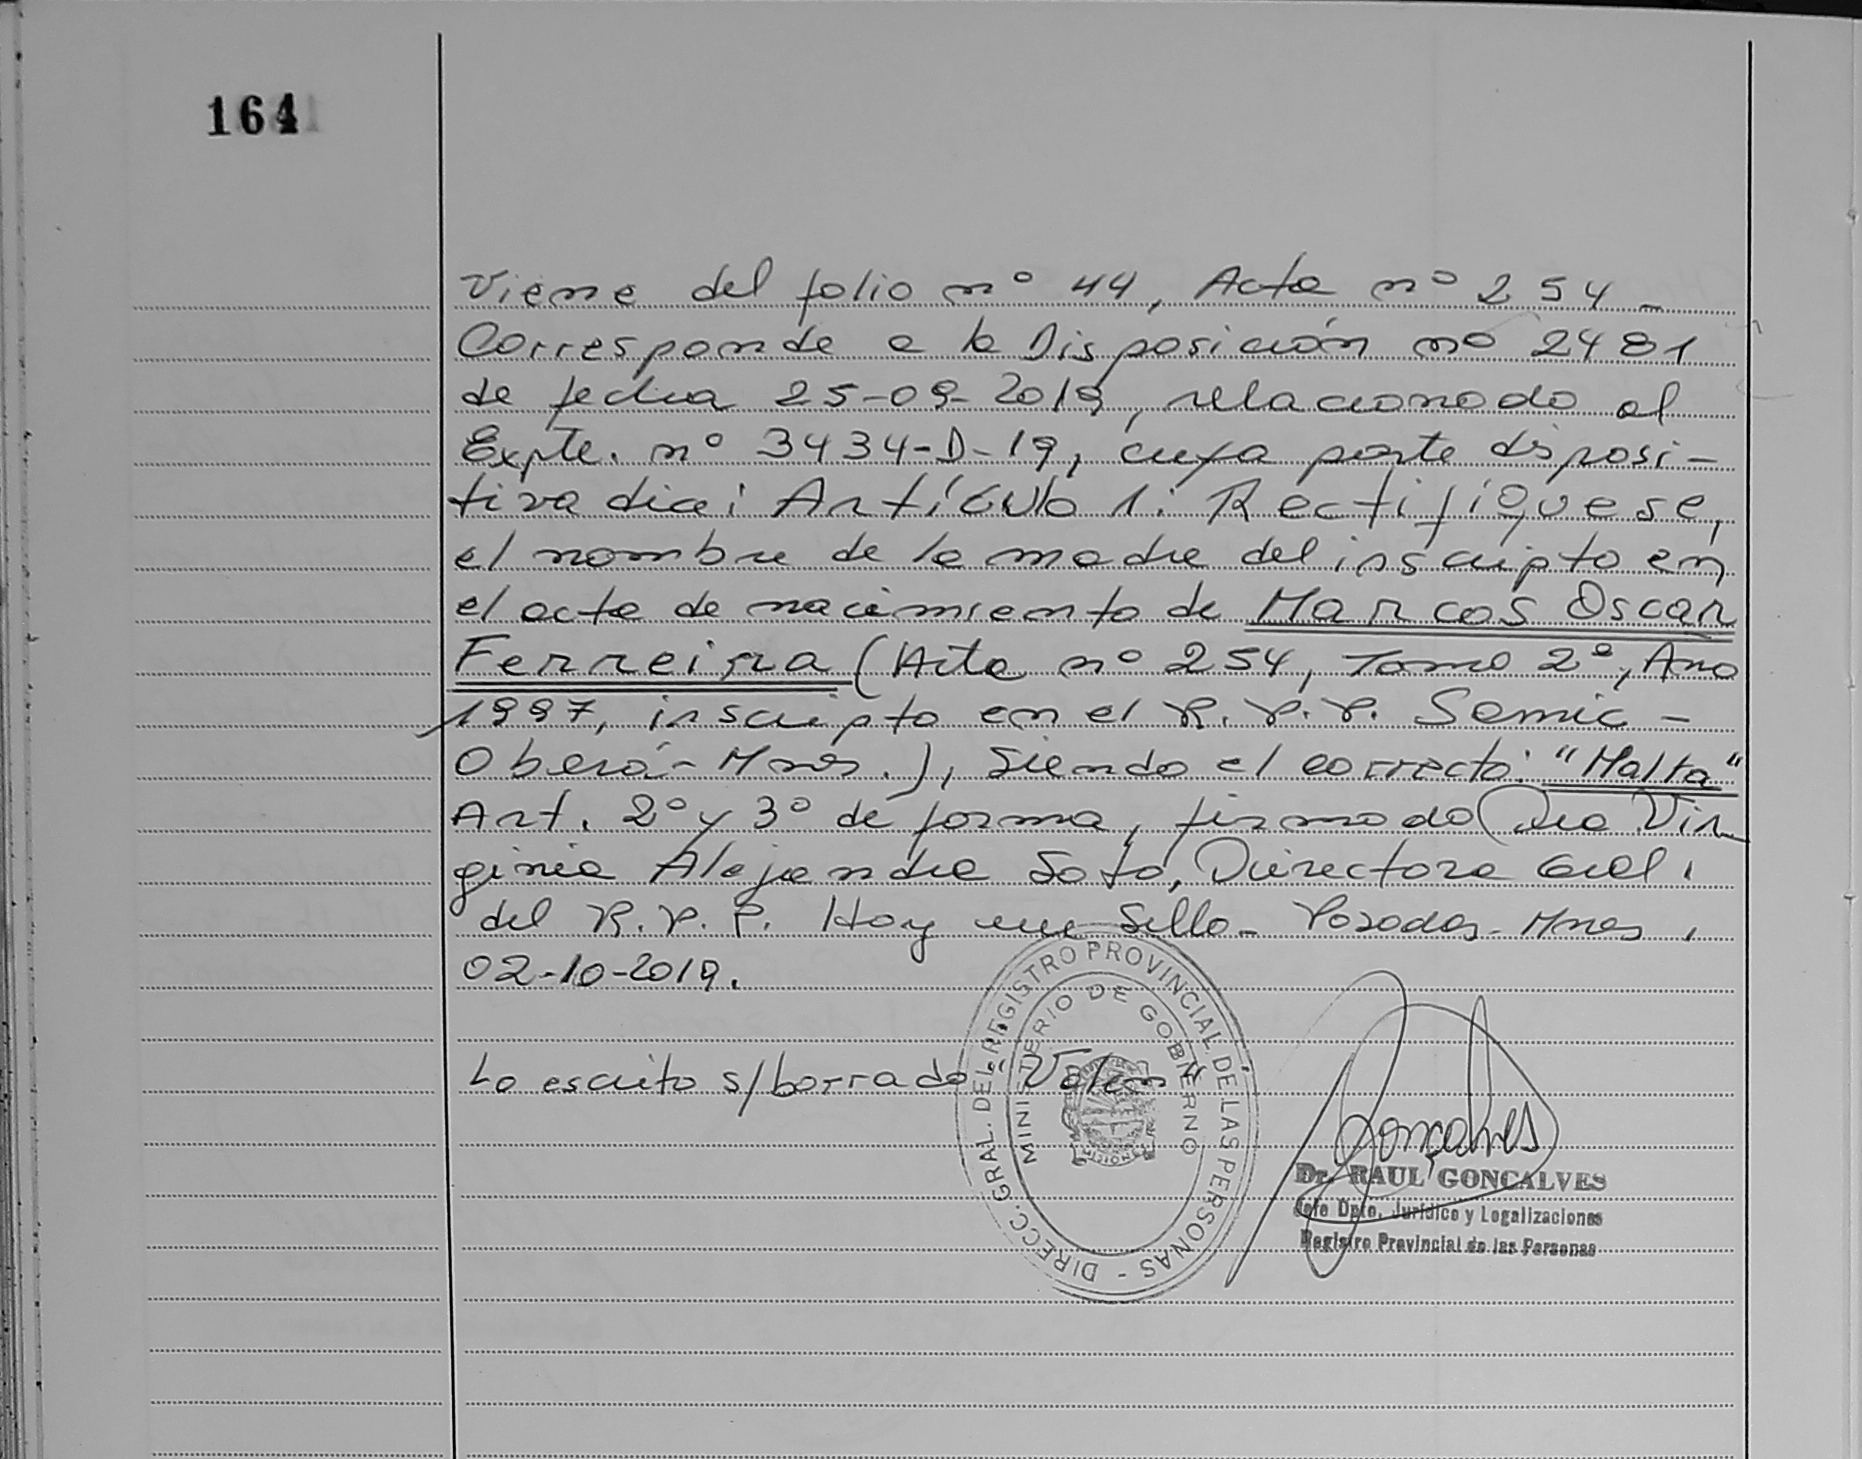 164
Viene del folio nº 44, Acta nº 254-
Corresponde a la Disposición nº 2481
de fecha 25-09-2019, relacionado al
Expte. nº 3434-D-19, cuya parte disposi-
tiva dice: Artículo 1: Rectifíquese,
el nombre de la madre del inscripto en
el acta de nacimiento de Marcos Oscar
Ferreira (Acta nº 254, Tomo 2º, Ano
1997, inscripto en el R.P.P. Samic -
Oberá - Mnes.), siendo el correcto: "Malta"
Art. 2º y 3º de forma, firmado Dra Vir
ginia Alejandra Soto, Directora Gral.
del R.P.P. Hay un Sello - Posadas - Mnes,
02-10-2019.
Lo escrito s/borrado "Valen"
DIRECC. GRAL. DEL REGISTRO PROVINCIAL DE LAS PERSONAS -
MINISTERIO DE GOBIERNO
MISIONES
Goncalves
Dr. RAUL GONCALVES
Jefe Dpto. Jurídico y Legalizaciones
Registro Provincial de las Personas